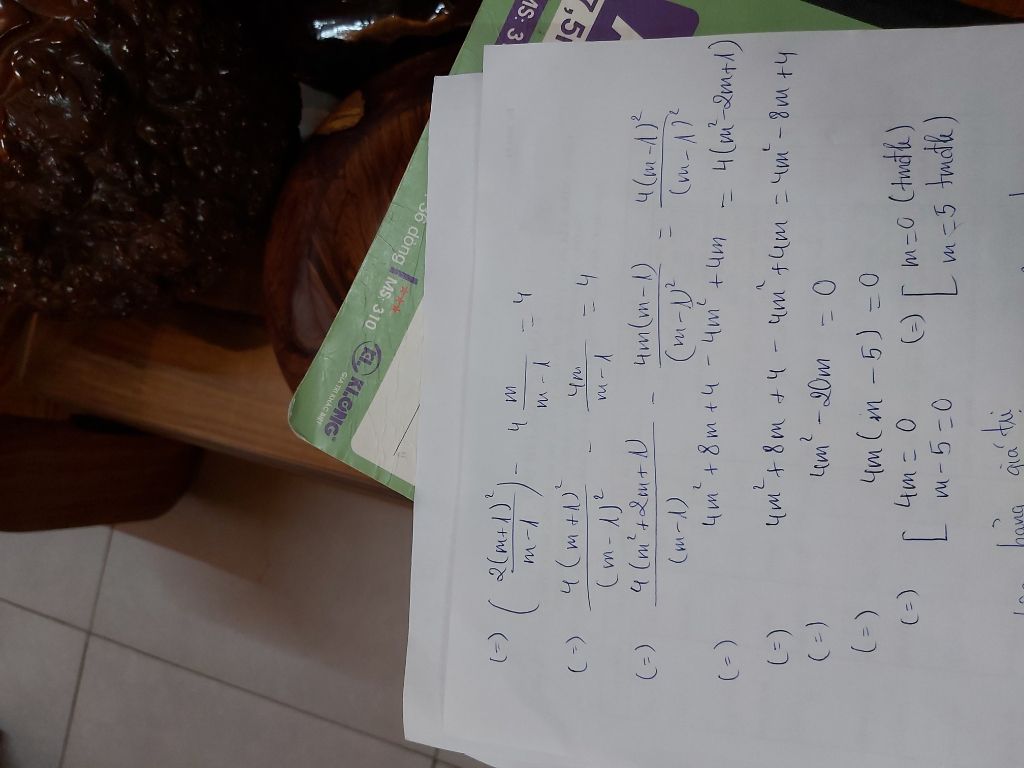 (=) (2(m+1)/m-1)² - 4 m/m-1 = 4
(=) 4(m+1)²/(m-1)² - 4m/m-1 = 4
(=) 4(m²+2m+1)/(m-1) - 4m(m-1)/(m-1)² = 4(m-1)²/(m-1)²
(=) 4m²+8m+4-4m²+4m = 4(m²-2m+1)
(=) 4m²+8m+4-4m²+4m = 4m²-8m+4
(=) 4m²-20m = 0
(=) 4m(m-5) = 0
(=) [ 4m=0 (=) [ m=0 (tmđk)
m-5=0 m=5 tmđk)
bảng giá trị
MS: 3
7,5
36 dòng
MS: 310
KLONG